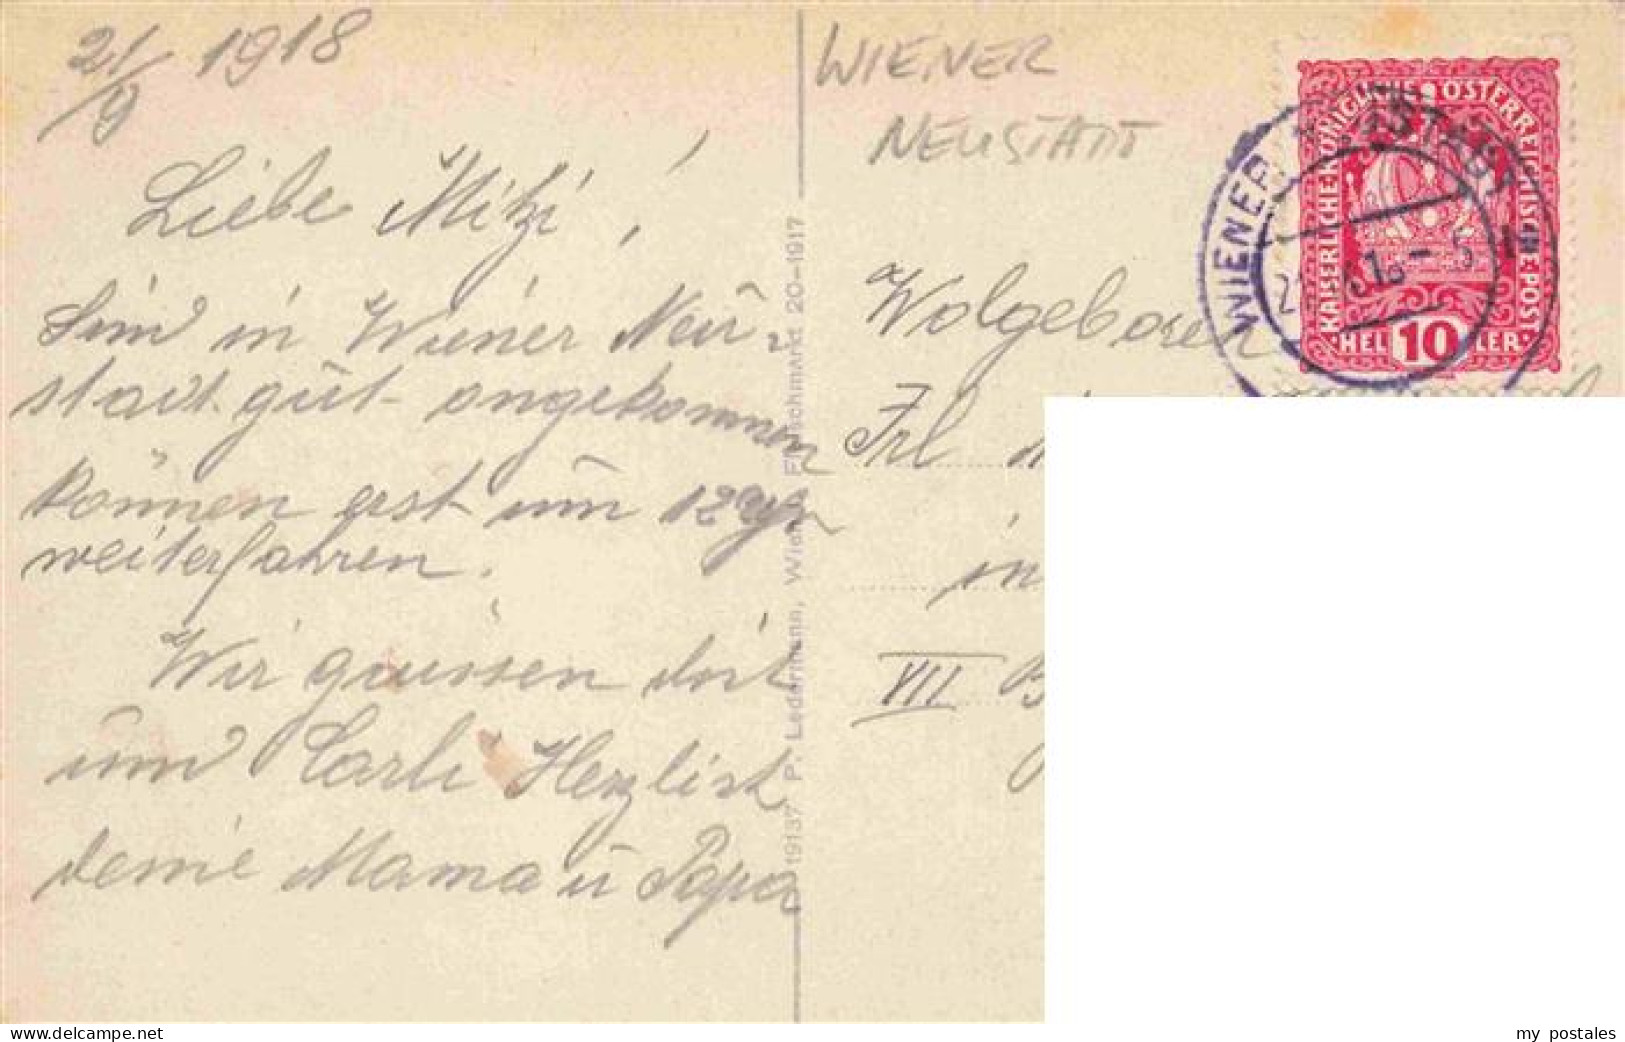 21/9 1918
Liebe Mitzi!
Sind in Wiener Neu-
stadt gut angekommen
können erst um 12 Uhr
weiterfahren.
Wir grüssen dich
und Carli Herzlich
deine Mama u Papa
19137 P. Ledermann, Wien I, Fleischmarkt 20-1917
WIENER
NEUSTADT
KAISERLICHE KÖNIGLICHE ÖSTERREICHISCHE POST
HELLER
10
WIENER NEUSTADT
Wolgeboren
Frl
in
VIII
www.delcampe.net
my_postales